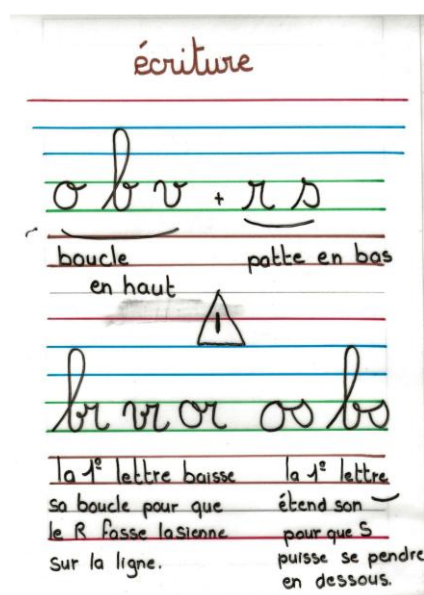 écriture
o b v + r s
boucle
en haut
patte en bas
!
br vr or os bs
la 1e lettre baisse
sa boucle pour que
le R fasse lasienne
sur la ligne.
la 1e lettre
étend son
pour que S
puisse se pendre
en dessous.